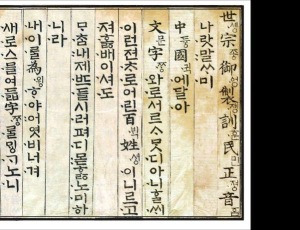 世솅宗조ᇰ御ᅌᅥᆼ製졩訓훈民민正져ᇰ音ᅙᅳᆷ
나랏말ᄊᆞ미
中듀ᇰ國귁에달아
文문字ᄍᆞᆼ와로서르ᄉᆞᄆᆞᆺ디아니ᄒᆞᆯᄊᆡ
이런젼ᄎᆞ로어린百ᄇᆡᆨ姓셔ᇰ이니르고
져호ᇙ배이셔도
ᄆᆞᄎᆞᆷ내제ᄠᅳ들시러펴디몯ᄒᆞᇙ노미하
니라
내이ᄅᆞᆯ為윙ᄒᆞ야어엿비너겨
새로스믈여듧字ᄍᆞᆼᄅᆞᆯᄆᆡᇰᄀᆞ노니